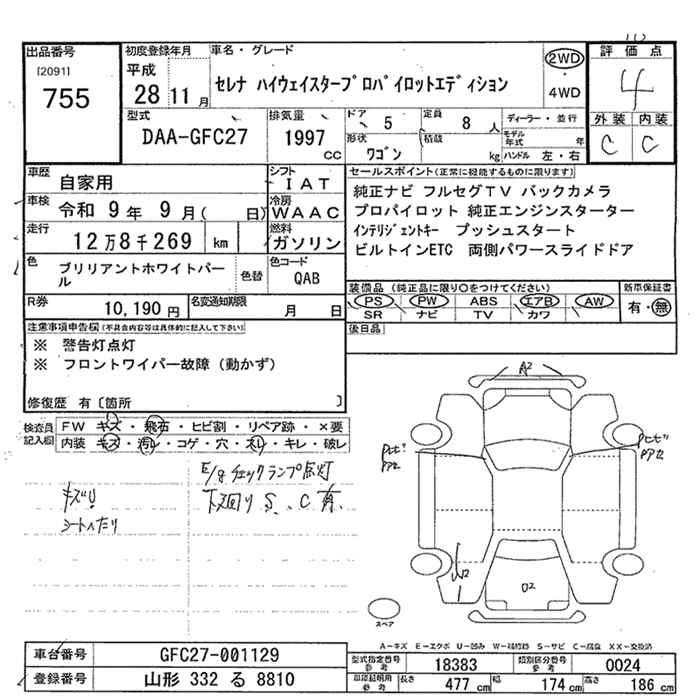 出品番号
[2091]
755
初度登録年月
平成
28 11 月
車名・グレード
セレナ ハイウェイスタープロパイロットエディション
2WD
・
4WD
評価点
4
外装 内装
C C
型式
DAA-GFC27
排気量
1997
CC
ドア 5
定員 8 人
形状 ワゴン
積載 kg
ディーラー・並行
モデル年式 年
ハンドル 左・右
車歴
自家用
シフト
IAT
車検
令和 9年 9月( 日)
冷房
WAAC
走行
12万8千269 km
燃料
ガソリン
色
ブリリアントホワイトパール
色替
色コード
QAB
R券
10,190円
名変通知期限
月 日
セールスポイント(正常に機能するものに限ります)
純正ナビ フルセグTV バックカメラ
プロパイロット 純正エンジンスターター
インテリジェントキー プッシュスタート
ビルトインETC 両側パワースライドドア
装備品(純正品に限り○をつけてください)
PS PW ABS エアB AW
SR ナビ TV カワ
新車保証書
有・無
後日品
注意事項申告欄(不具合内容等は具体的に記入して下さい)
※ 警告灯点灯
※ フロントワイパー故障(動かず)
修復歴 有〔箇所 〕
検査員記入欄
FW キズ・飛石・ヒビ割・リペア跡・×要
内装 キズ・汚レ・コゲ・穴・スレ・キレ・破レ
E/gチェックランプ点灯
下回りS、C有、
キズU
シートヘたり
A2
PPW
W2
O2
スペア
A-キズ E-エクボ U-凹み W-補修跡 S-サビ C-腐食 XX-交換済
車台番号
GFC27-001129
登録番号
山形 332 る 8810
型式指定番号 参考
18383
類別区分番号 参考
0024
車庫証明用 参考
長さ 477 cm
幅 174 cm
高さ 186 cm